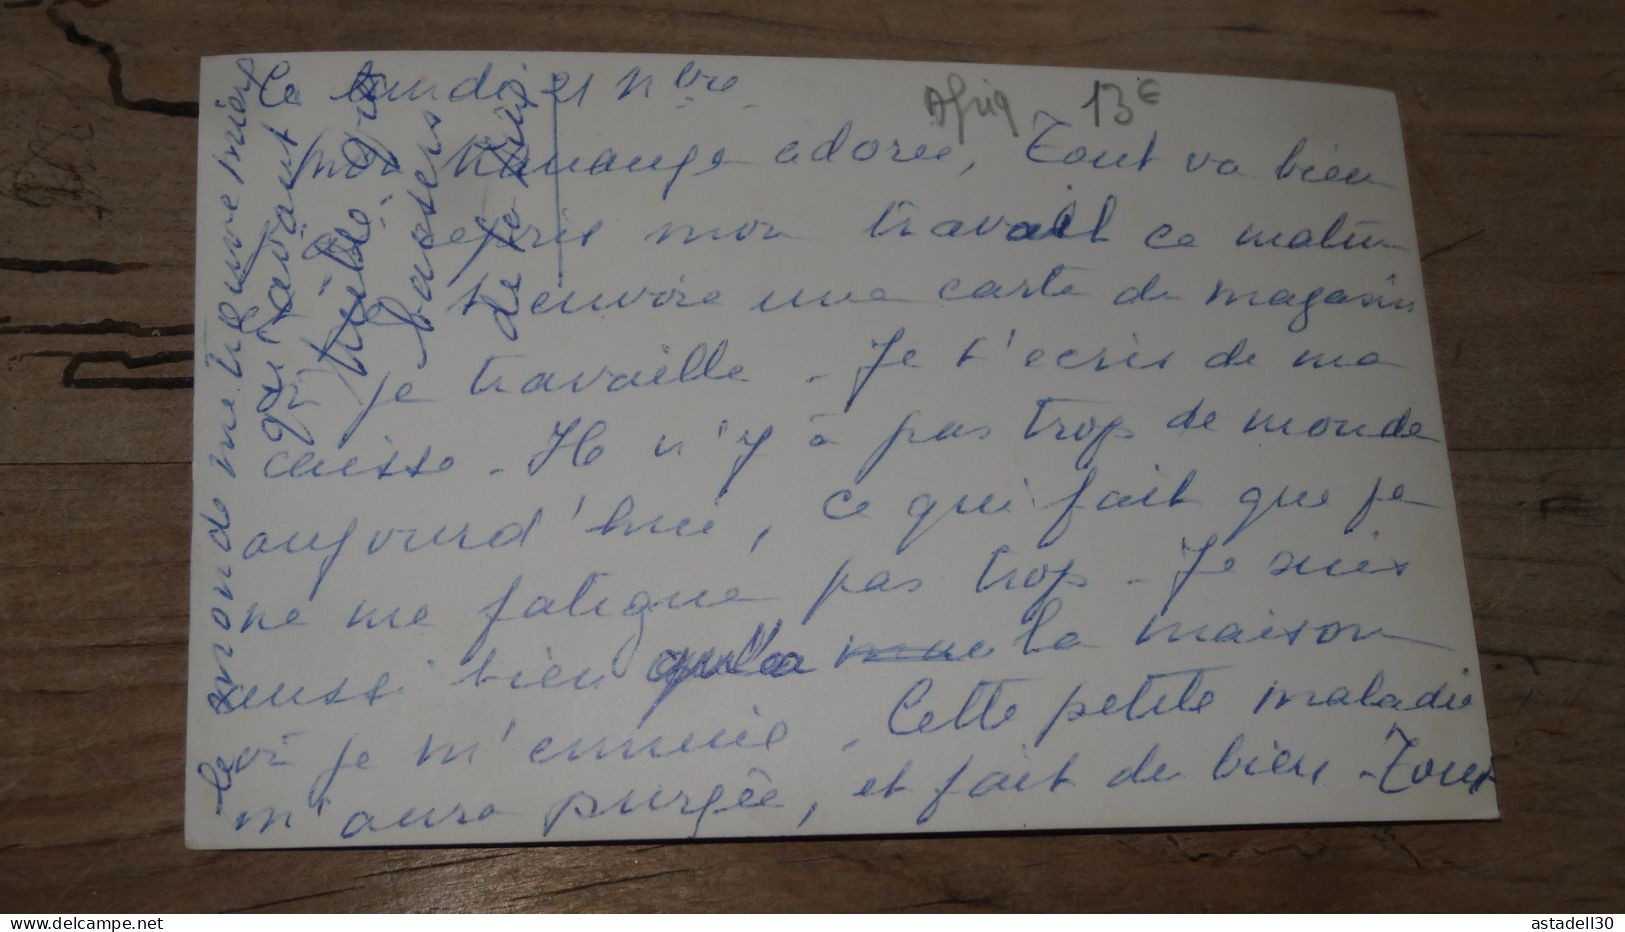 Le Lundi 21 Nbre
Afriq 13€
Mon adorée, Tout va bien
repris mon travail ce matin
t'envoie une carte du magasin
où je travaille. Je t'ecris de ma
caisse. Il n'y à pas trop de monde
aujourd'hui, ce qui fait que je
ne me fatigue pas trop. Je suis
aussi bien qu'à la maison
où je m'ennuie. Cette petite maladie
m'aura purgée, et fait du bien. Tout
le monde me trouve mieux
qu'avant
baisers
de
astadell30